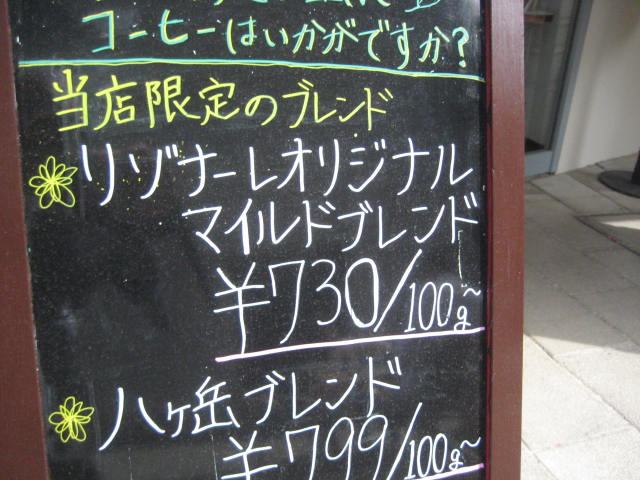 コーヒーはいかがですか?
当店限定のブレンド
リゾナーレオリジナル
マイルドブレンド
¥730/100g~
八ヶ岳ブレンド
¥799/100g~